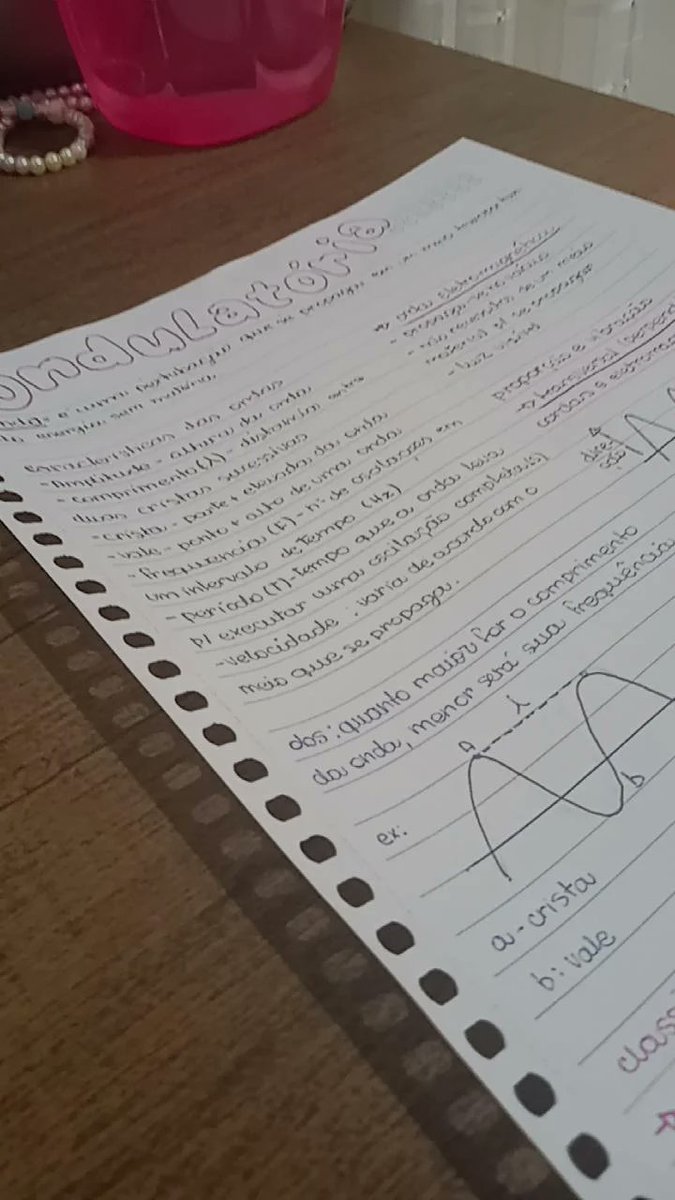 ondulatória
onda: é uma perturbação que se propaga em um meio
energia sem matéria.
características das ondas
- Amplitude - altura da onda
- comprimento (λ) - distância entre
duas cristas sucessivas
- crista - parte + elevada da onda
- vale - ponto + alto de uma onda
- frequência (F) - nº de oscilações em
um intervalo de tempo (Hz)
- período (T) - tempo que a onda leva
p/ executar uma oscilação completa (s)
- velocidade: varia de acordo com o
meio que se propaga.
obs: quanto maior for o comprimento
da onda, menor será sua frequência
ex:
a
λ
b
a - crista
b: vale
class
→ onda eletromagnética
- propaga no vácuo
- não necessita de um meio
material p/ se propagar
- luz visível
proporção e vibração
→ transversal
cordas e
dire
ção